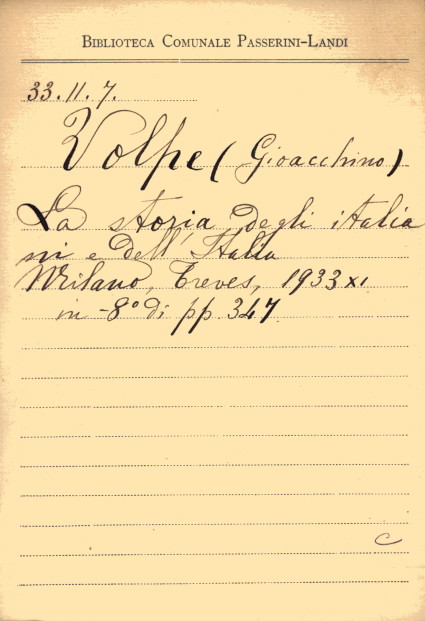 BIBLIOTECA COMUNALE PASSERINI-LANDI
33.11.7.
Volpe (Gioacchino)
La storia degli italia
ni e dell'Italia
Milano, Treves, 1933 XI
in -8° di pp. 347
C